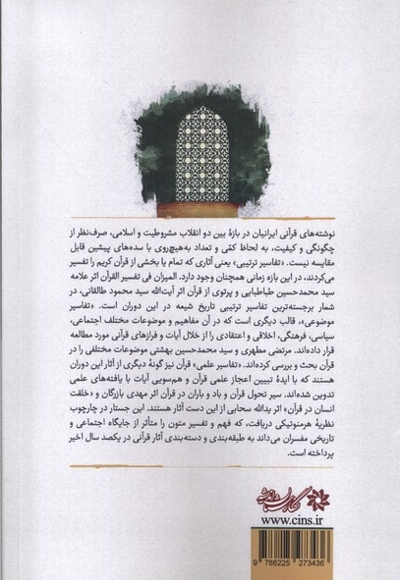 نوشته‌های قرآنی ایرانیان در بازه بین دو انقلاب مشروطیت و اسلامی، صرف‌نظر از
چگونگی و کیفیت، به لحاظ کمّی و تعداد به‌هیچ‌روی با سده‌های پیشین قابل
مقایسه نیست. «تفاسیر ترتیبی» یعنی آثاری که تمام یا بخشی از قرآن کریم را تفسیر
می‌کردند، در این بازه زمانی همچنان وجود دارد. المیزان فی تفسیر القرآن اثر علامه
سید محمدحسین طباطبایی و پرتوی از قرآن اثر آیت‌الله سید محمود طالقانی، در
شمار برجسته‌ترین تفاسیر ترتیبی تاریخ شیعه در این دوران است. «تفاسیر
موضوعی»، قالب دیگری است که در آن مفاهیم و موضوعات مختلف اجتماعی،
سیاسی، فرهنگی، اخلاقی و اعتقادی را از خلال آیات و فرازهای قرآنی مورد مطالعه
قرار داده‌اند. مرتضی مطهری و سید محمدحسین بهشتی موضوعات مختلفی را در
قرآن بحث و بررسی کرده‌اند. «تفاسیر علمی» قرآن نیز گونهٔ دیگری از آثار این دوران
هستند که با ایدهٔ تبیین اعجاز علمی قرآن و هم‌سویی آیات با یافته‌های علمی
تدوین شده‌اند. سیر تحول قرآن و باد و باران در قرآن اثر مهدی بازرگان و «خلقت
انسان در قرآن» اثر یدالله سحابی از این دست آثار هستند. این جستار در چارچوب
نظریهٔ هرمنوتیکی دریافت، که فهم و تفسیر متون را متأثر از جایگاه اجتماعی و
تاریخی مفسران می‌داند به طبقه‌بندی و دسته‌بندی آثار قرآنی در یکصد سال اخیر
پرداخته است.
www.cins.ir
9 786225 273436